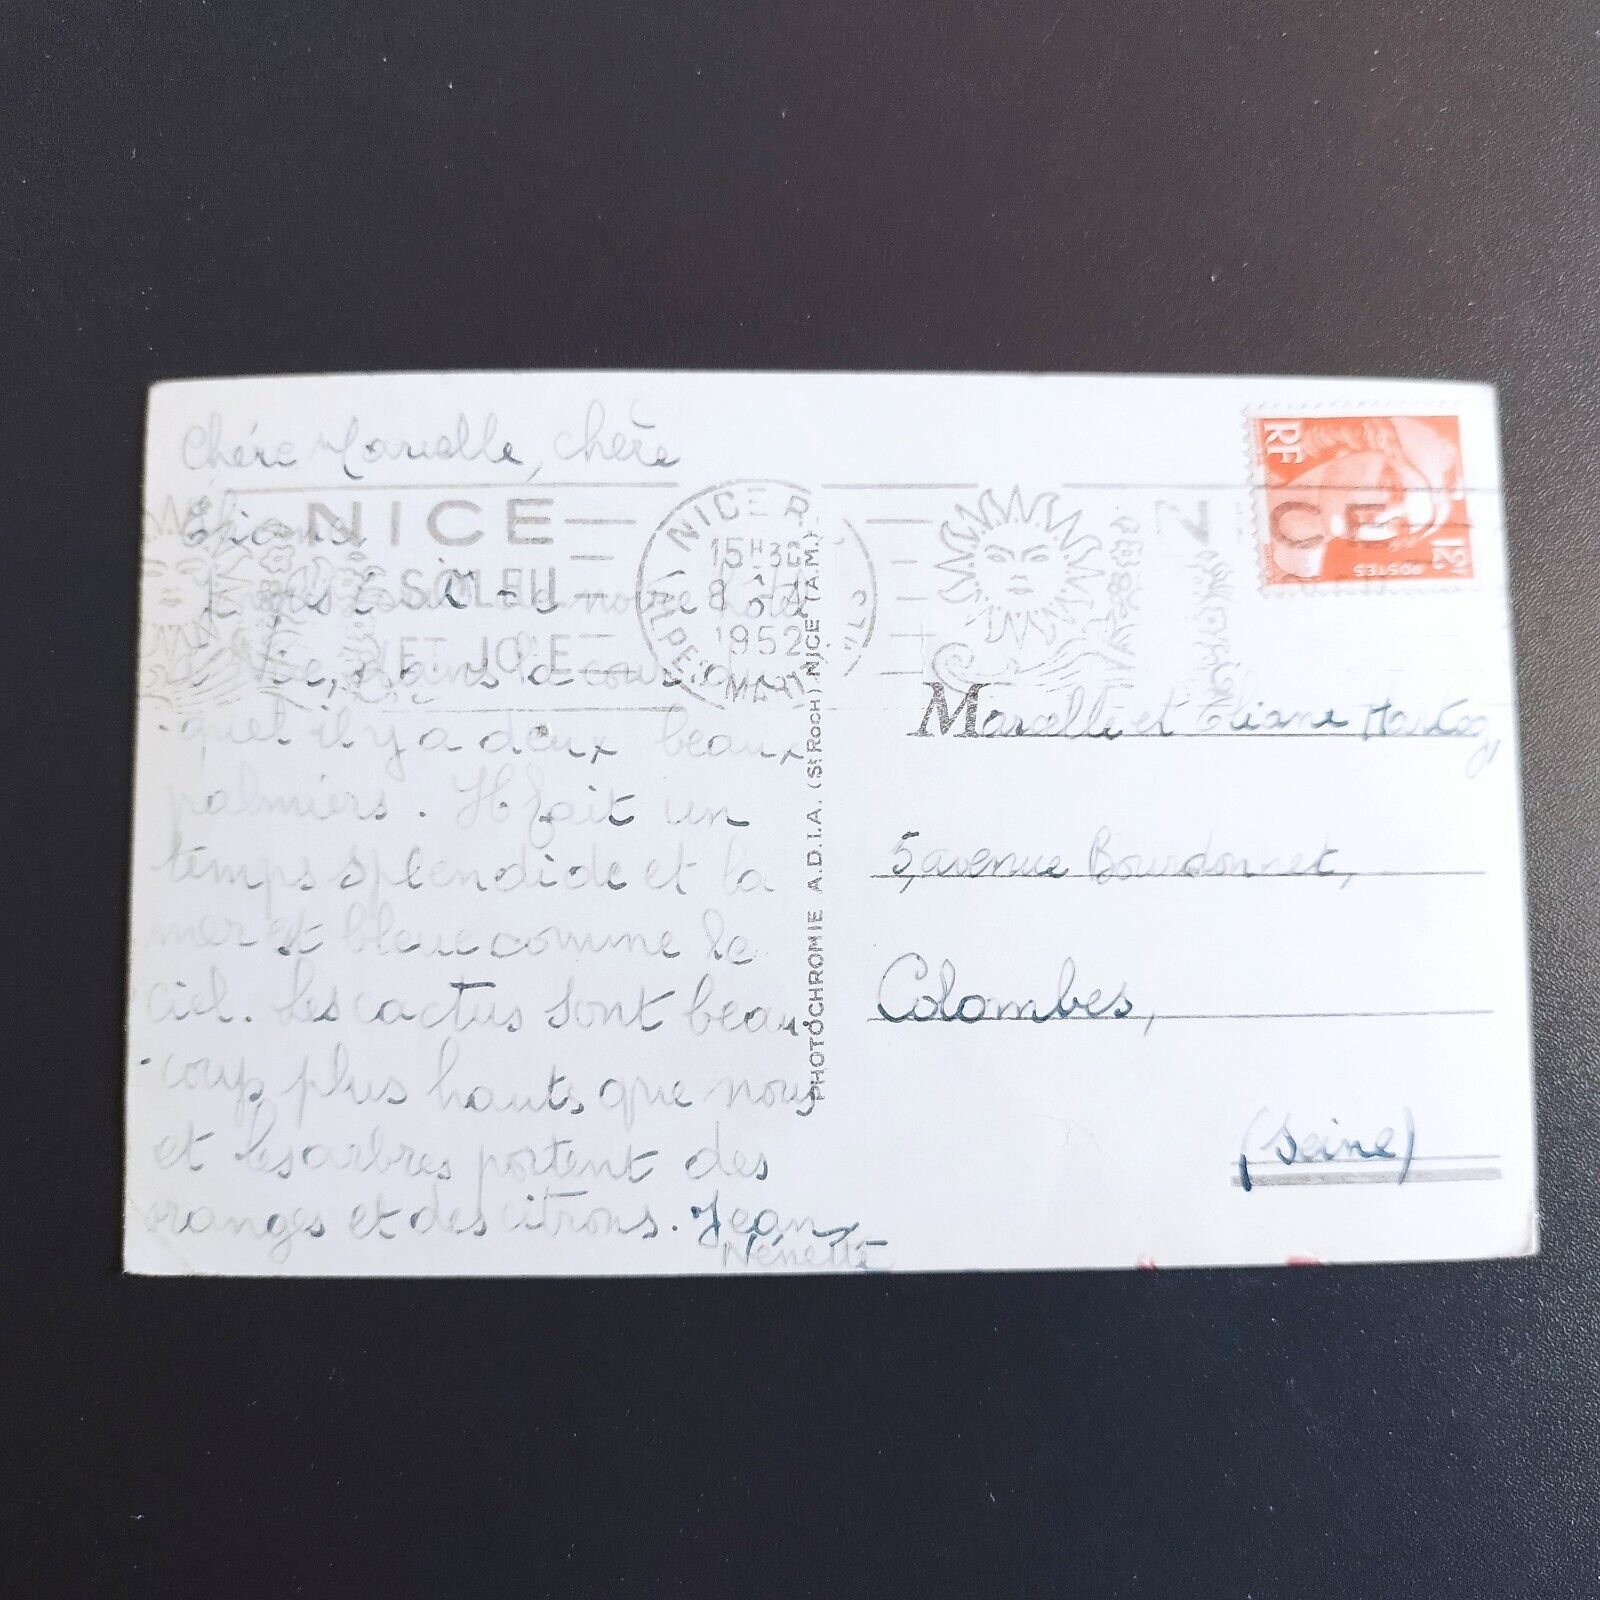 Chère Marcelle, chère
Eliane
notre hôtel
Nice, dans la cour du
-quel il y a deux beaux
palmiers. Il fait un
temps splendide et la
mer est bleue comme le
ciel. Les cactus sont beau
-coup plus hauts que nous
et les arbres portent des
oranges et des citrons. Jean,
Nénette
NICE
SOLEIL
ET JOIE
NICE R.P.
15H30
8
1952
ALPES MARITIMES
PHOTOCHROMIE A.D.I.A. (St ROCH) NICE (A.M.)
NICE
RF
12F
POSTES
Marcelle et Eliane Hartog,
5, avenue Bourdonnet,
Colombes,
(Seine)